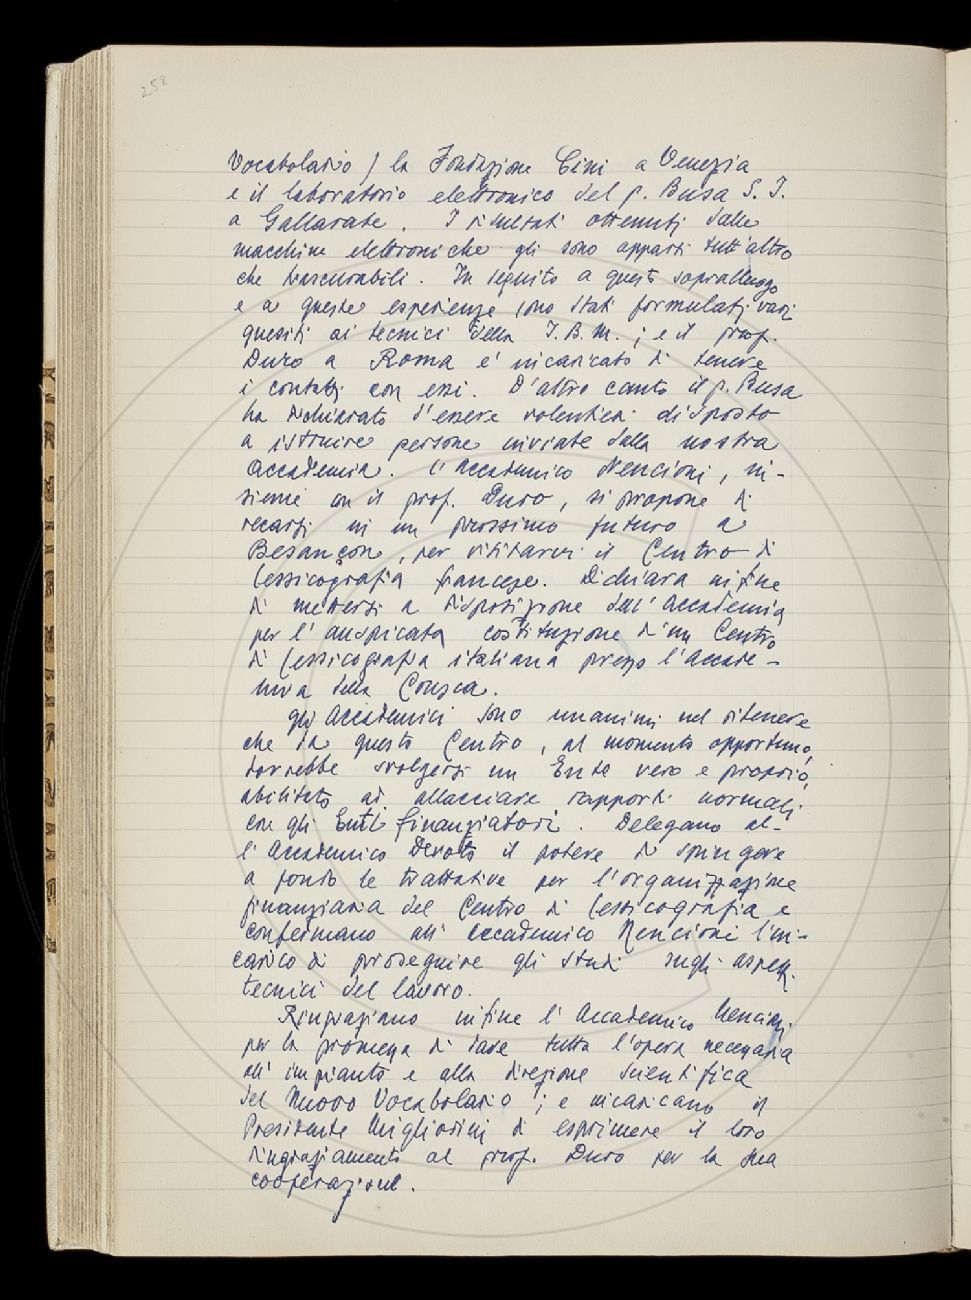 258
Vocabolario) la Fondazione Cini a Venezia
e il laboratorio elettronico del p. Busa S. I.
a Gallarate. I risultati ottenuti dalle
macchine elettroniche gli sono apparsi tutt'altro
che trascurabili. In seguito a questi sopralluoghi
e a queste esperienze sono stati formulati vari
quesiti ai tecnici della I.B.M.; e il prof.
Duro a Roma è incaricato di tenere
i contatti con essi. D'altro canto il p. Busa
ha dichiarato d'essere volentieri disposto
a istruire persone inviate dalla nostra
Accademia. L'Accademico Nencioni, in-
sieme con il prof. Duro, si propone di
recarsi in un prossimo futuro a
Besançon, per visitarvi il Centro di
lessicografia francese. Dichiara infine
di mettersi a disposizione dell'Accademia
per l'auspicata costituzione d'un Centro
di lessicografia italiana presso l'Accade-
mia della Crusca.
Gli Accademici sono unanimi nel ritenere
che da questo Centro, al momento opportuno,
dovrebbe svolgersi un Ente vero e proprio,
abilitato ad allacciare rapporti normali
con gli Enti finanziatori. Delegano al-
l'Accademico Devoto il potere di spingere
a fondo le trattative per l'organizzazione
finanziaria del Centro di lessicografia e
confermano all'Accademico Nencioni l'in-
carico di proseguire gli studi sugli aspetti
tecnici del lavoro.
Ringraziano infine l'Accademico Nencioni
per la promessa di dare tutta l'opera necessaria
all'impianto e alla direzione scientifica
del Nuovo Vocabolario; e incaricano il
Presidente Migliorini di esprimere il loro
ringraziamento al prof. Duro per la sua
cooperazione.